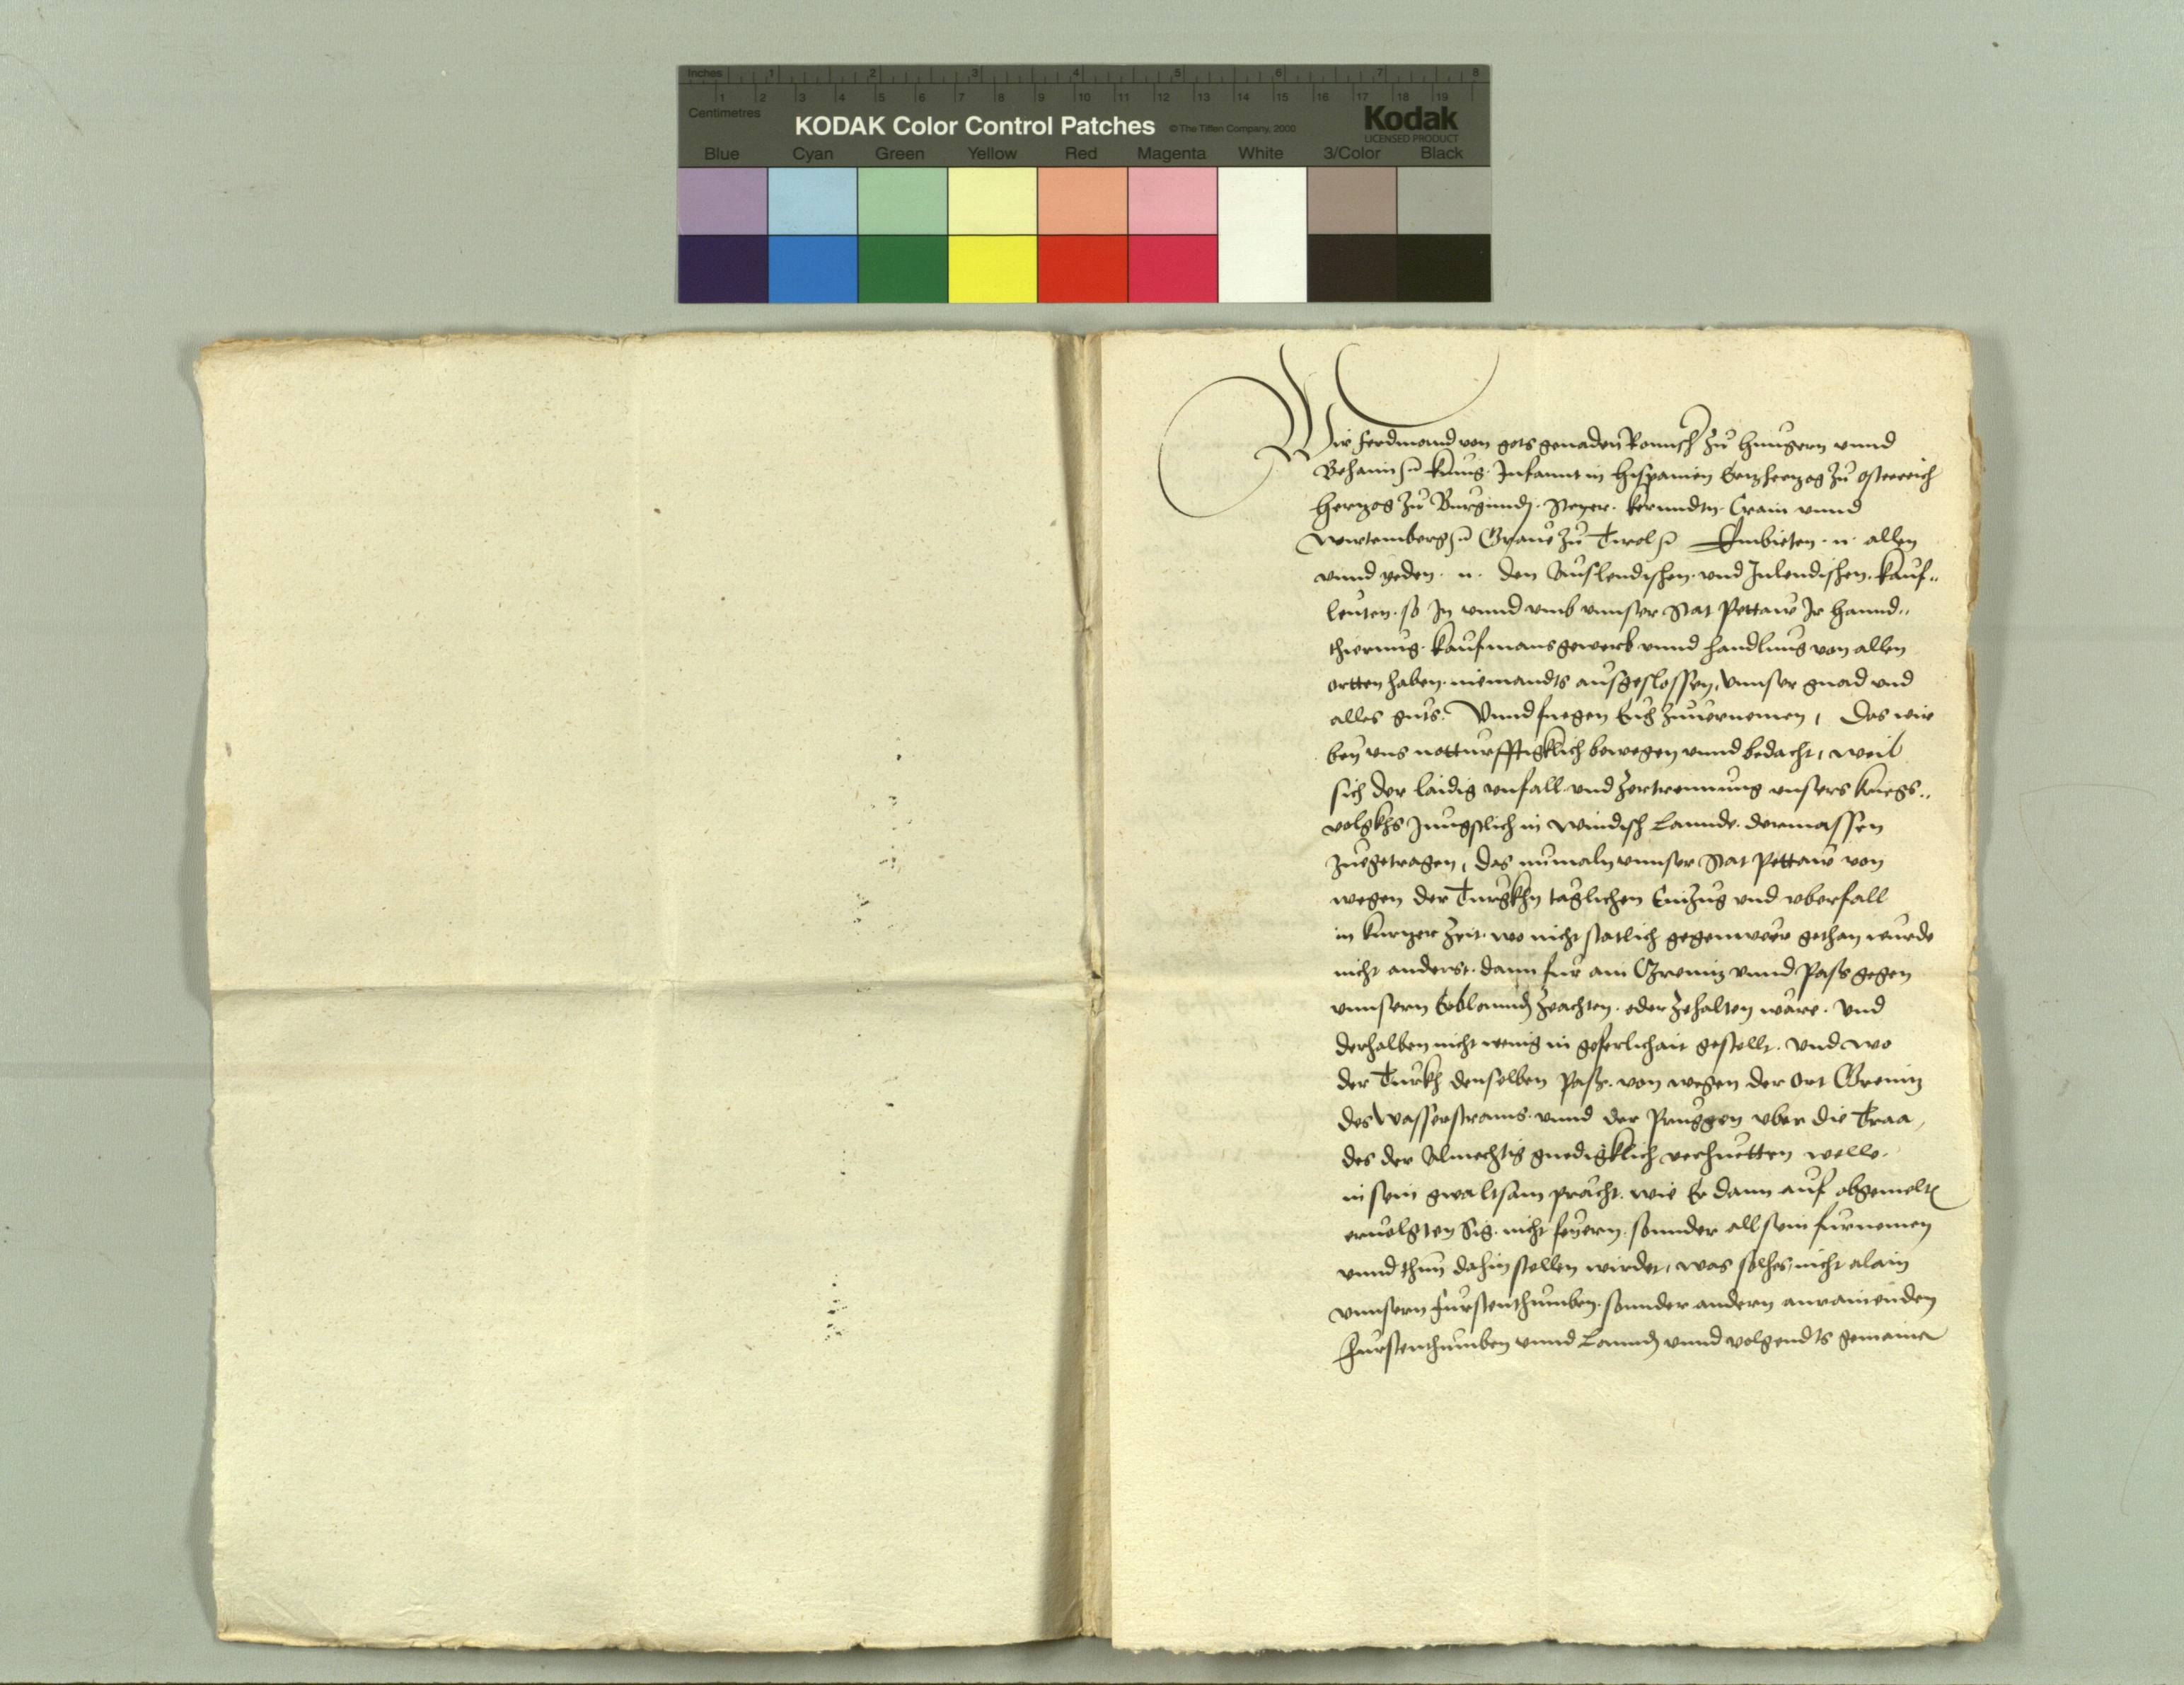 Inches 1 2 3 4 5 6 7 8
1 2 3 4 5 6 7 8 9 10 11 12 13 14 15 16 17 18 19
Centimetres
KODAK Color Control Patches © The Tiffen Company, 2000 Kodak
LICENSED PRODUCT
Blue Cyan Green Yellow Red Magenta White 3/Color Black
Wir Ferdinand von gots genaden Romisch zu Hungern vnnd
Behaim kunig. Infannt in Hispanien Ertzhertzog zu Osterreich
Hertzog zu Burgundj. Steyer. kerndtn. Crain vnnd
Wirtemberg Graue zu Tirol Embieten. n. allen
vnnd yeden. n. den Auslendischen. vnd Inlendischen. kauf„
leuten. so In vnnd vmb vnnser Stat Pettaw Ir hannd„
thierung. kaufmansgewerb vnnd handlung von allen
ortten haben. niemandts ausgeslossen, vnnser gnad vnd
alles guts. Vnnd fuegen Euch zuuernemen, Das wir
bey vns notturfftigklich bewegen vnnd bedacht, weil
sich der laidig vnfall. vnd zertrennung vnsers kriegs„
volgkhs Jungstlich in Windisch Lannde. dermassen
zuegetragen, das numaln vnnser Stat Pettaw von
wegen der Turgkhn taglichen Einzug vnd vberfall
in kurtzer zeit. wo nicht statlich gegenweer gethan wurde
nicht anderst. dann fur ain Grenitz vnnd Pass gegen
vnnsern Erblannd zeachten. oder zehalten ware. Vnd
derhalben nicht wenig in geferlichait gestellt. Vnd wo
der Turkh denselben Pass. von wegen der Ort Grenitz
des Wasserstrams. vnnd der Pruggen vber die Traa,
des der Almechtig gnedigklich verhuetten welle.
in sein gwaltsam pracht. wie Er dann auf obgemelt
eruolgten Sig. nicht feyern. sonnder all sein furnemen
vnnd thun dahin stellen wirdet, was solhes, nicht alain
vnnsern Furstenthumben. sonnder andern anrainenden
Furstenthumben vnnd Lannd vnnd volgendts gemainer